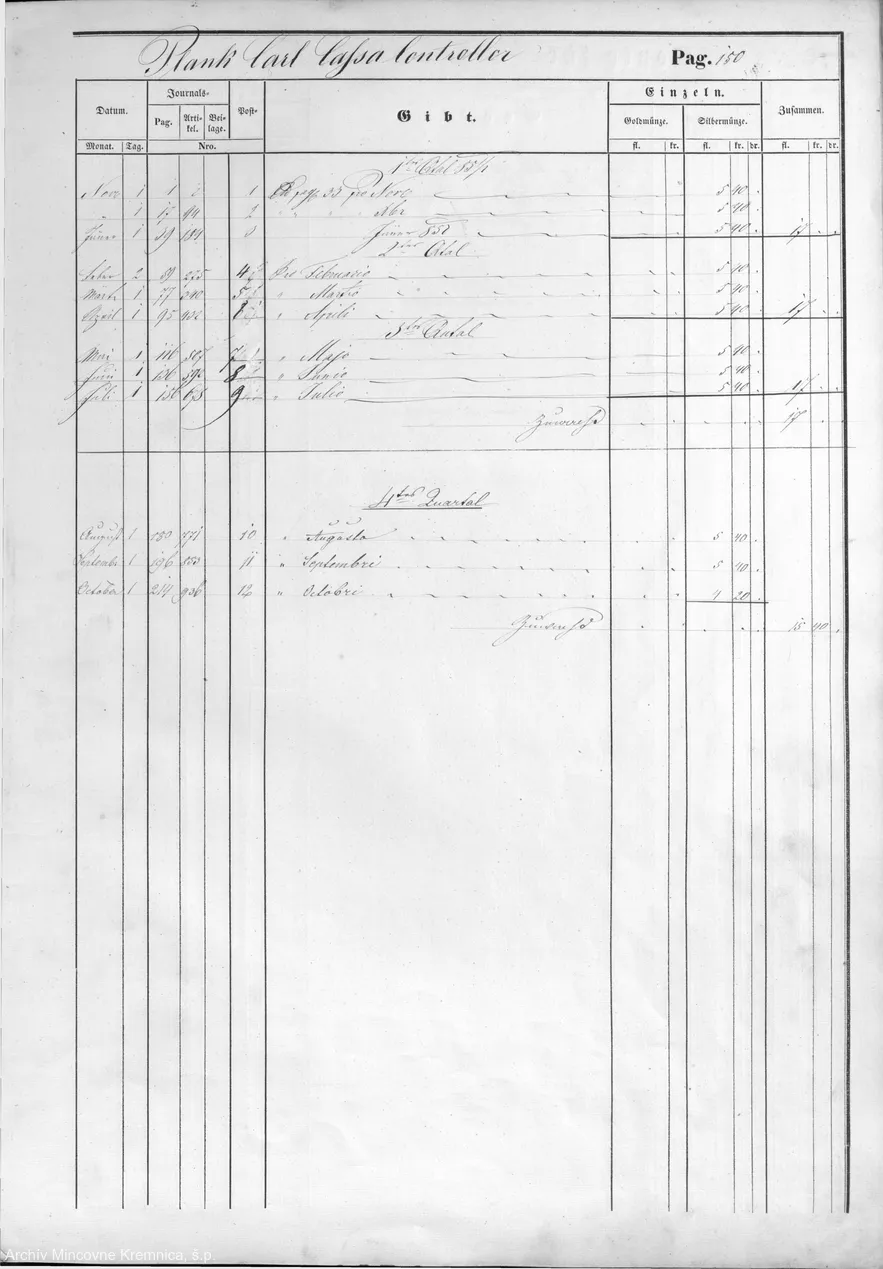 Plank Carl Cassa Controller Pag. 150
Datum. Journals- Post- Gibt. Einzeln. Zusammen.
Pag. Arti- kel. Bei- lage. Goldmünze. Silbermünze.
Monat. Tag. Nro. fl. kr. fl. kr. dr. fl. kr. dr.
1tes Qtal
Nove 1 1 1 pro Nove 5 40
" 1 17 94 2 " " Xbr 5 40
Jäner 1 39 184 3 Jäner 5 40 17
2tes Qtal
2 59 275 4 Pro Februario 5 40
März 1 77 340 5 " Martio 5 40
April 1 95 432 6 " Aprili 5 40 17
3tes Quartal
Mai 1 116 507 7 " Majo 5 40
Juni 1 136 592 8 " Junio 5 40
Juli 1 156 675 9 " Julio 5 40 17
17
4tes Quartal
August 1 180 771 10 " Augusto 5 40
Septembr 1 196 853 11 " Septembri 5 40
October 1 214 936 12 " Octobri 4 20
15 40
Archív Mincovne Kremnica, š.p.